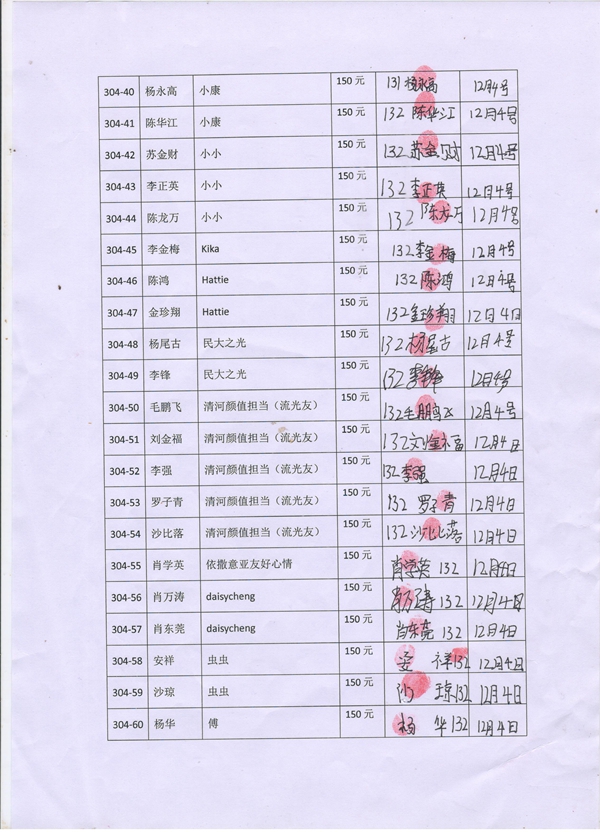 304-40 杨永高 小康 150 元 131 杨永高 12月4号
304-41 陈华江 小康 150 元 132 陈华江 12月4号
304-42 苏金财 小小 150 元 132 苏金财 12月4号
304-43 李正英 小小 150 元 132 李正英 12月4号
304-44 陈龙万 小小 150 元 132 陈龙万 12月4号
304-45 李金梅 Kika 150 元 132 李金梅 12月4号
304-46 陈鸿 Hattie 150 元 132 陈鸿 12月4号
304-47 金珍翔 Hattie 150 元 132 金珍翔 12月4日
304-48 杨尾古 民大之光 150 元 132 杨尾古 12月4号
304-49 李锋 民大之光 150 元 132 李锋 12月4号
304-50 毛鹏飞 清河颜值担当（流光友） 150 元 132 毛鹏飞 12月4号
304-51 刘金福 清河颜值担当（流光友） 150 元 132 刘金福 12月4日
304-52 李强 清河颜值担当（流光友） 150 元 132 李强 12月4日
304-53 罗子青 清河颜值担当（流光友） 150 元 132 罗子青 12月4日
304-54 沙比落 清河颜值担当（流光友） 150 元 132 沙比落 12月4日
304-55 肖学英 依撒意亚友好心情 150 元 肖学英 132 12月4日
304-56 肖万涛 daisycheng 150 元 肖万涛 132 12月4日
304-57 肖东莞 daisycheng 150 元 肖东莞 132 12月4日
304-58 安祥 虫虫 150 元 安祥 132 12月4日
304-59 沙琼 虫虫 150 元 沙琼 132 12月4日
304-60 杨华 傅 150 元 杨华 132 12月4日